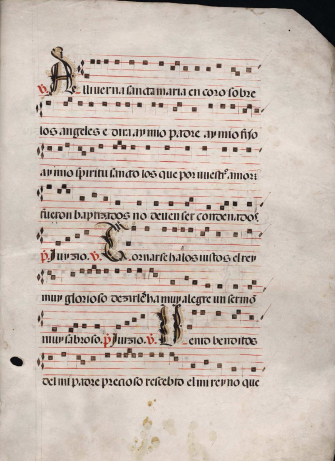 ℣. Alli verna sancta maria en coro sobre
los angeles e dira ay mio padre ay mio fijo
ay mio spiritu sancto los que por nuestro amor
fueron baptizados no deuen ser condenados.
p Juyzio. ℣. Tornarse ha los iustos el rey
muy glorioso dezirles ha muy alegre un sermō
muy sabroso. p Juizio. ℣. Venid benditos
del mi padre precioso rescebid el mi reyno que